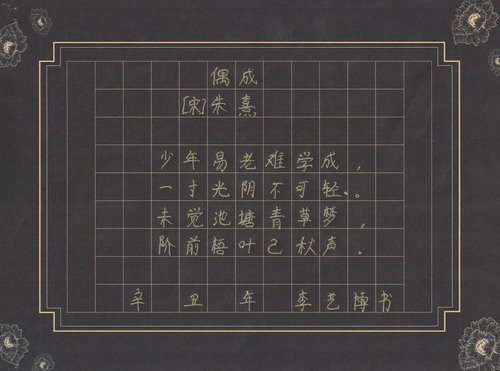 偶成
[宋]朱熹
少年易老难学成，
一寸光阴不可轻、。
未觉池塘青草梦，
阶前梧叶已秋声．
辛丑年 李艺博书